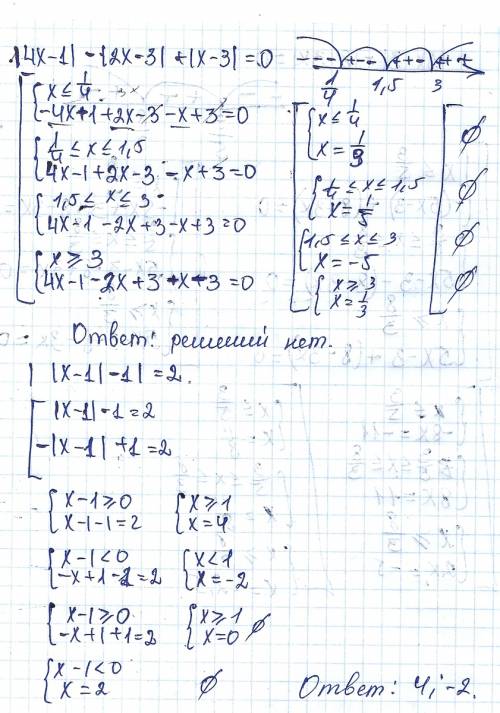 |4x-1| - |2x-3| + |x-3| = 0
- - - + - - + + - + + +
1/4 1,5 3
x ≤ 1/4
-4x+1+2x-3-x+3=0
1/4 ≤ x ≤ 1,5
4x-1+2x-3-x+3=0
1,5 ≤ x ≤ 3
4x-1-2x+3-x+3=0
x ≥ 3
4x-1-2x+3+x-3=0
x ≤ 1/4
x = 1/3
∅
1/4 ≤ x ≤ 1,5
x = 1/5
∅
1,5 ≤ x ≤ 3
x = -5
∅
x ≥ 3
x = 1/3
∅
Ответ: решений нет.
| |x-1| -1| = 2.
|x-1| -1 = 2
-|x-1| +1 = 2
x-1 ≥ 0
x-1-1=2
x ≥ 1
x=4
x-1<0
-x+1-1=2
x<1
x=-2
x-1 ≥ 0
-x+1+1=2
x ≥ 1
x=0 ∅
x-1<0
x=2 ∅
Ответ: 4; -2.